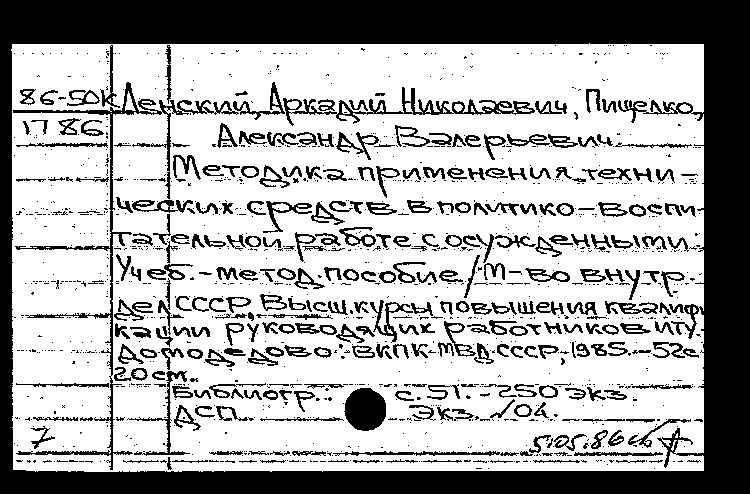 86-50к Ленский, Аркадий Николаевич, Пищелко,
1786 Александр Валерьевич.
Методика применения техни-
ческих средств в политико-воспи-
тательной работе с осужденными:
Учеб.-метод. пособие / М-во внутр.
дел СССР, Высш. курсы повышения квалифи
кации руководящих работников ИТУ.-
Домодедово: ВКПК МВД СССР, 1985.-52с.
20 см.
Библиогр.: с. 51. - 250 экз.
ДСП Экз. №04.
7 5.05.86